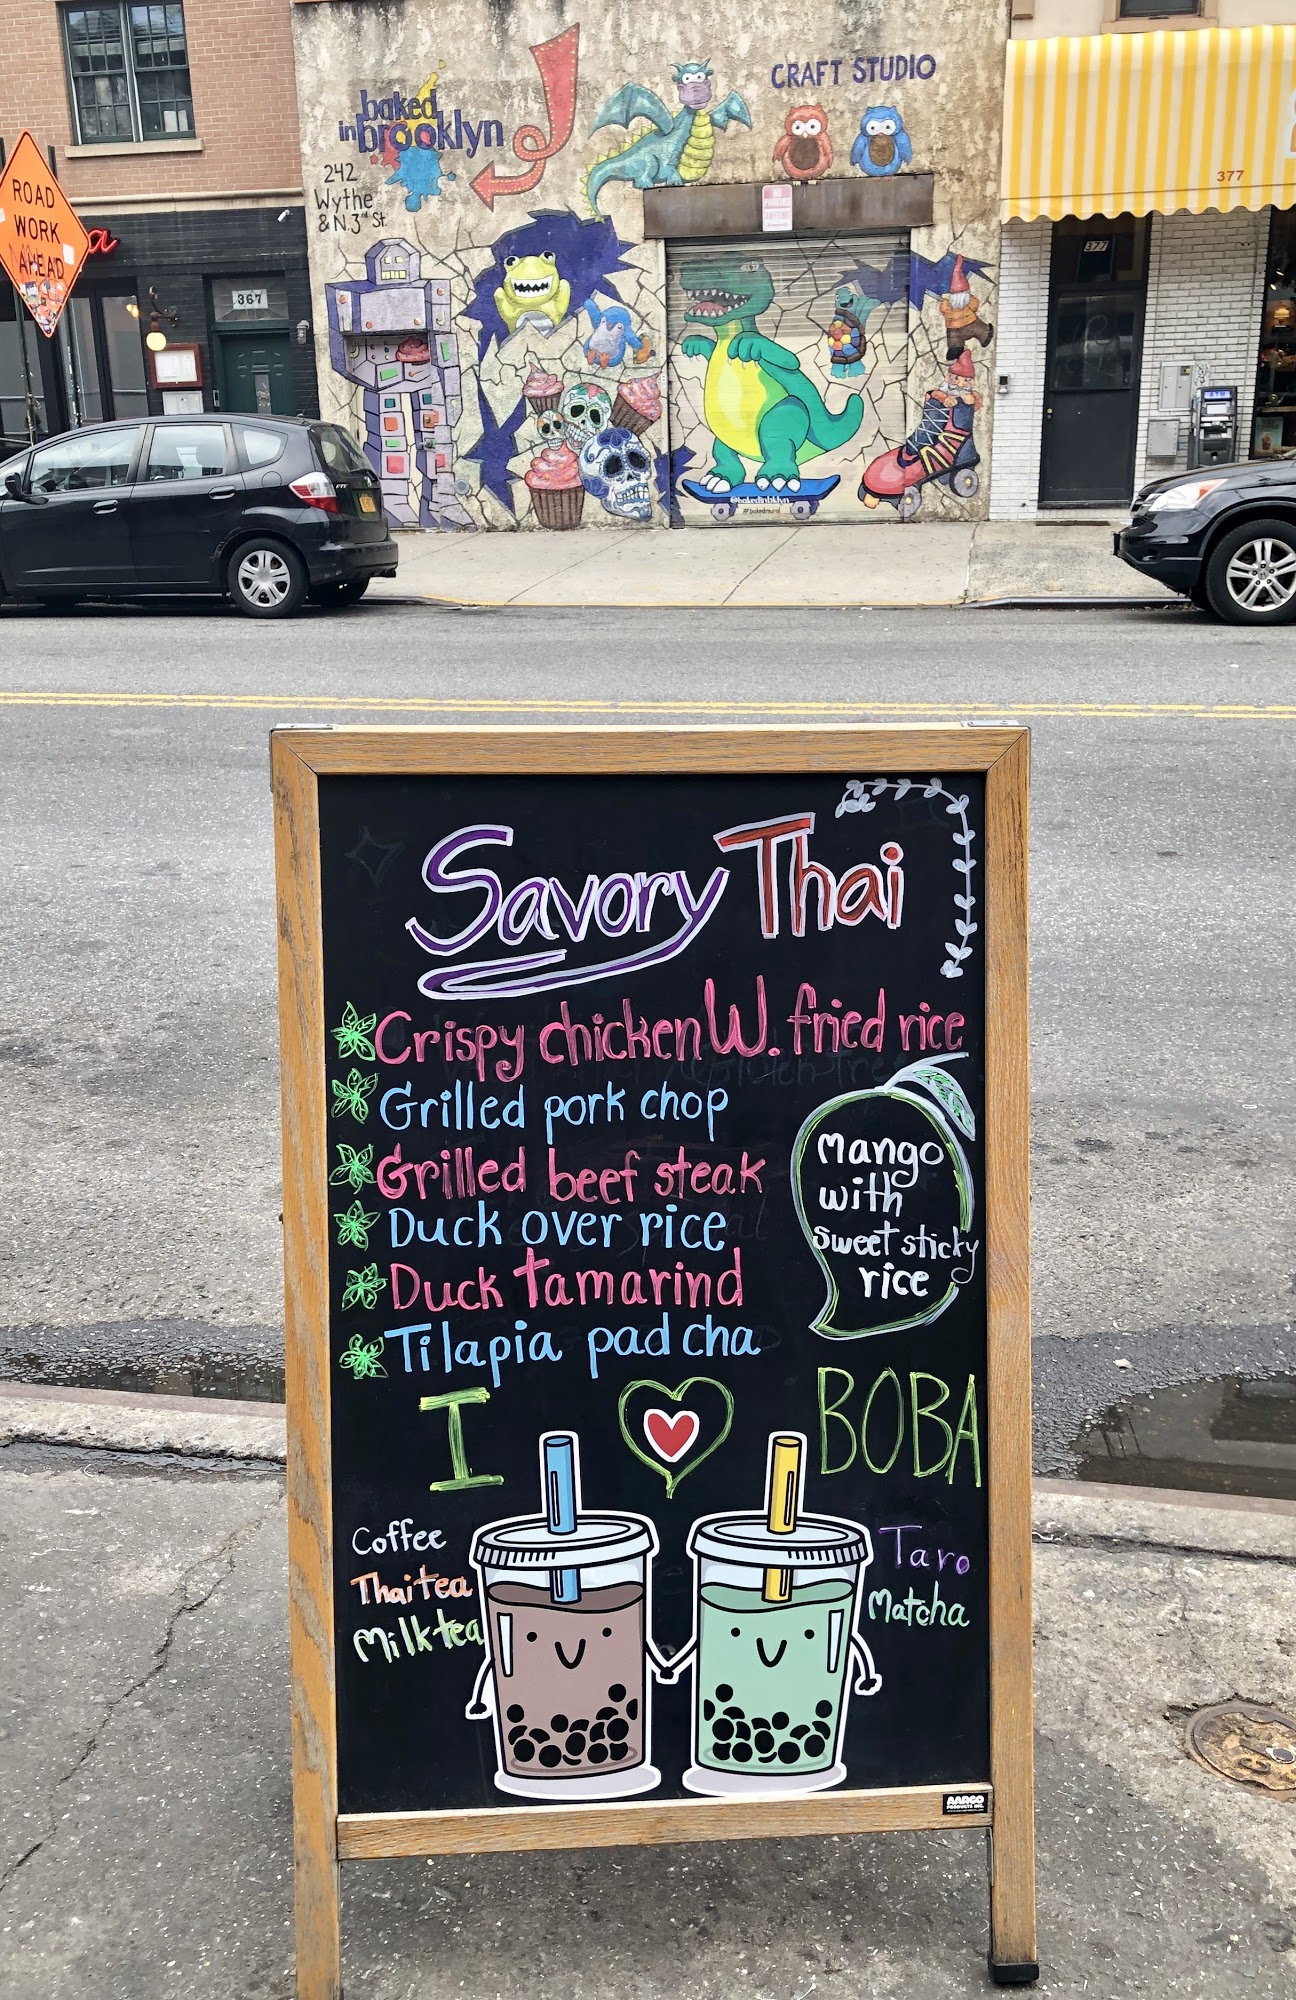 baked
in brooklyn
242
Wythe
& N. 3rd St.
CRAFT STUDIO
NO
PARKING
ANYTIME
ROAD
WORK
AHEAD
a
367
377
377
ATM
FIT
@bakedinbklyn
#bakedmural
Savory Thai
Crispy chicken W. fried rice
Grilled pork chop
Grilled beef steak
Duck over rice
Duck tamarind
Tilapia pad cha
mango
with
sweet sticky
rice
I BOBA
Coffee
Thai tea
Milk tea
Taro
Matcha
AARCO
PRODUCTS INC.